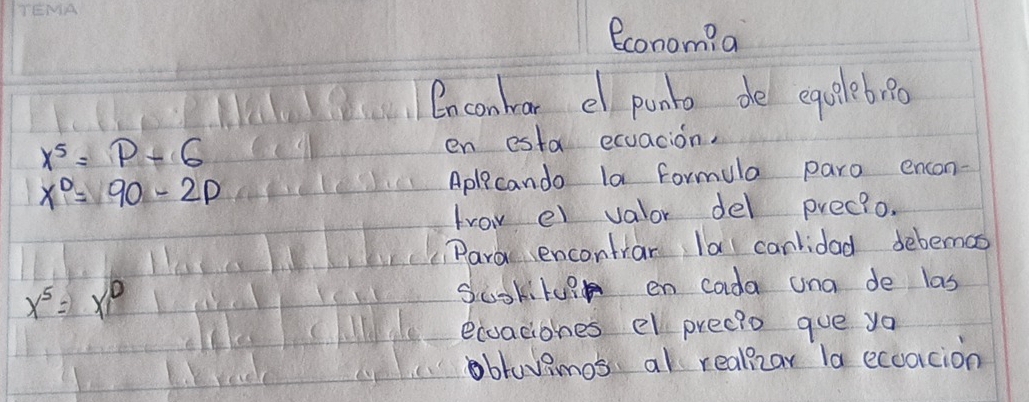 TEMA
Economia
Encontrar el punto de equilibrio
en esta ecuación.
x^s = P - 6
Aplicando la formula para encon-
x^D = 90 - 2P
trar el valor del precio.
Para encontrar la cantidad debemos
x^s = x^D
sustituir en cada una de las
ecuaciones el precio que ya
obtuvimos al realizar la ecuación